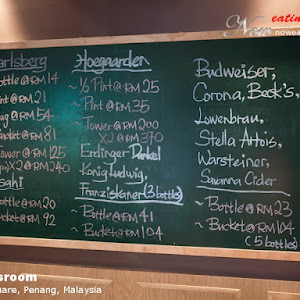 eatin
Now
noweat
arlsberg
Bottle @ RM 14
Pint @ RM 21
ug @ RM 54
Bucket @ RM 81
Tower @ RM 125
X2 @ RM 240
Asahi
Bottle @ RM 20
Bucket @ RM 92
Hoegaarden
~ 1/2 Pint @ RM 25
~ Pint @ RM 35
~ Tower @ RM 200
X2 @ RM 370
Erdinger Dunkel
König Ludwig,
Franziskaner (3 bottle)
~ Bottle @ RM 41
~ Bucket @ RM 104
Budweiser,
Corona, Beck's,
Lowenbrau,
Stella Artois,
Warsteiner,
Savanna Cider
~ Bottle @ RM 23
~ Bucket @ RM 104
(5 bottles)
sroom
uare, Penang, Malaysia